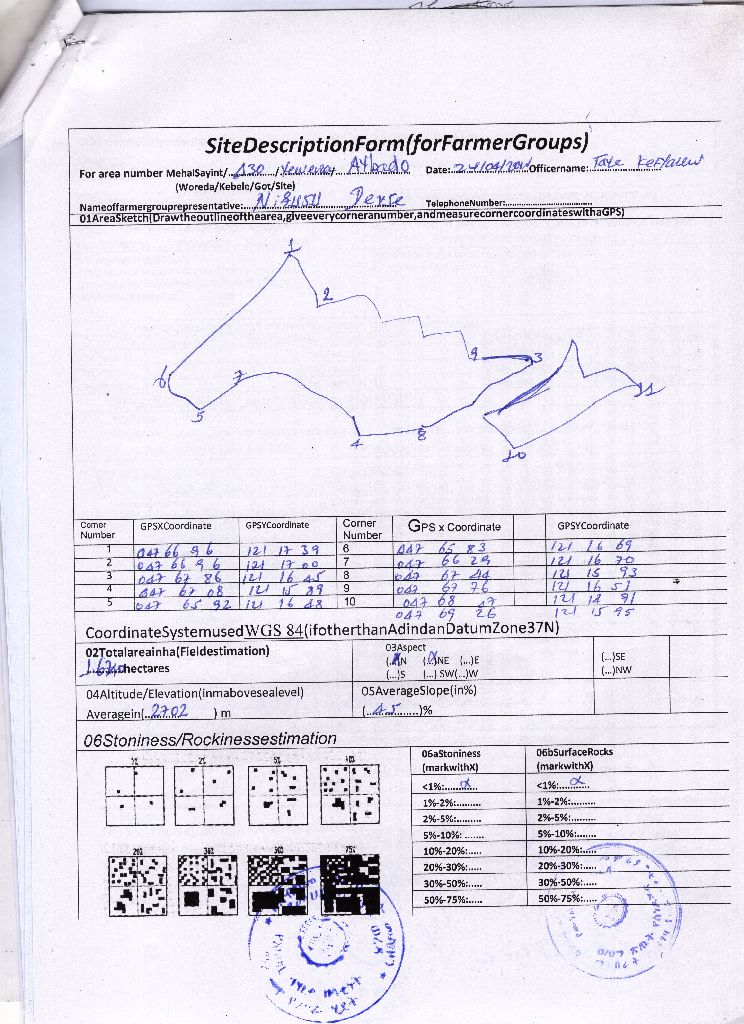 SiteDescriptionForm(forFarmerGroups)
For area number MehalSayint/..130../Yeweray Aybado Date:..24/04/2014 Officername:.Taye Kefyalew
(Woreda/Kebele/Got/Site)
Nameoffarmergrouprepresentative:... Derse TelephoneNumber:
01AreaSketch(Drawtheoutlineofthearea,giveeverycorneranumber,andmeasurecornercoordinateswithaGPS)
1
2
9
3
6
7
11
5
4
8
10
Corner Number GPSXCoordinate GPSYCoordinate Corner Number GPS x Coordinate GPSYCoordinate
1 047 66 96 121 17 39 6 047 65 83 121 16 69
2 047 66 96 121 17 00 7 047 66 29 121 16 70
3 047 67 86 121 16 45 8 047 67 44 121 15 93
4 047 67 08 121 15 89 9 047 67 76 121 16 51
5 047 65 92 121 16 48 10 047 68 121 14 91
047 69 26 121 15 95
CoordinateSystemusedWGS 84(ifotherthanAdindanDatumZone37N)
02Totalareainha(Fieldestimation) 03Aspect
hectares (..X)N (.X)NE (...)E (...)SE
(...)S (...) SW(...)W (...)NW
04Altitude/Elevation(inmabovesealevel) 05AverageSlope(in%)
Averagein(..2702......) m (...45......)%
06Stoniness/Rockinessestimation
06aStoniness (markwithX) 06bSurfaceRocks (markwithX)
1% 2% 5% 10%
<1%:....X.... <1%:....X....
1%-2%:......... 1%-2%:.........
2%-5%:......... 2%-5%:.........
5%-10%: ....... 5%-10%:.......
20% 30% 50% 75%
10%-20%:..... 10%-20%:.....
20%-30%:..... 20%-30%:.....
30%-50%:..... 30%-50%:.....
50%-75%:..... 50%-75%:.....